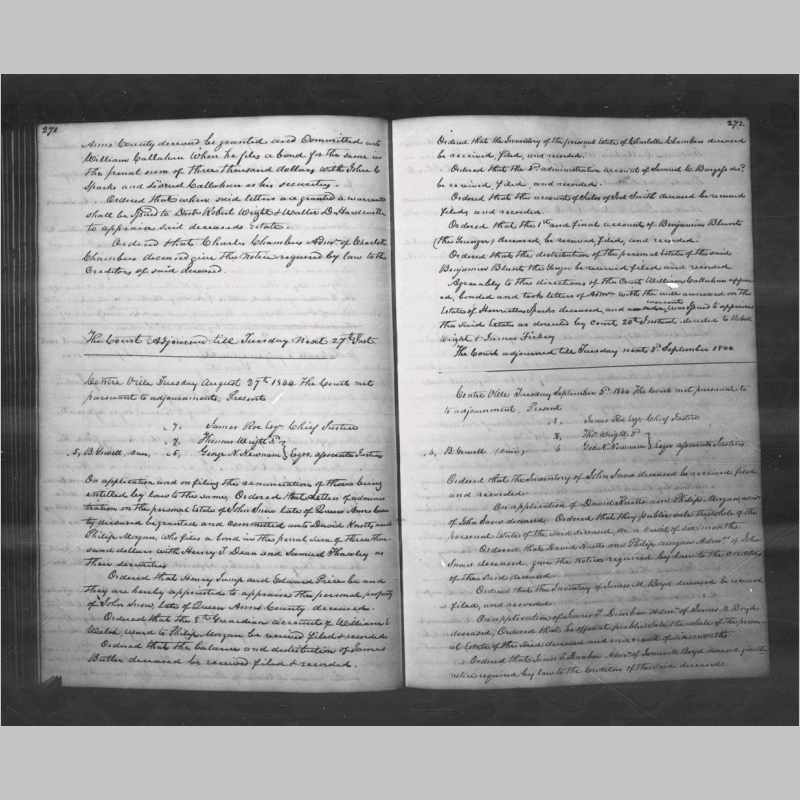 271
Anns County deceased be granted and Committed unto
William Callahan when he files a bond for the same in
the penal sum of three thousand dollars with John C
Sparks and Callahan as his securities.
Ordered that when said letters are granted a warrant
shall be to Doctr Robert Wright & Walter D. Hardcastle
to appraise said deceaseds estate.
Ordered that Charles Chambers Admr. of Charlotte
Chambers deceased give the Notice required by law to the
Creditors of said deceased.
The Court Adjourned till Tuesday Next 27th Inst.
Centre Ville Tuesday August 27th 1844 The Court met
pursuant to adjournment, Present
7, James Roe Esqr. Chief Justice
7, Thomas Wright 3d
5, B. Gwill, 5, George N. Newnam Esqrs. associate Justices
On application and on filing the renunciation of those being
entitled by law to the same, Ordered that letters of adminis
tration on the personal estate of John Snow late of Queen Anns Coun
ty deceased be granted and committed unto David Knotts and
Philip Morgan, who files a bond in the penal sum of three thou
sand dollars with Henry J. Dean and Samuel Thawley as
their securities
Ordered that Henry Jump and Edward Price be and
they are hereby appointed to appraise the personal property
of John Snow, late of Queen Anns County deceased.
Ordered that the Guardian account of William E
Walsh, ward to Philip Morgan be received filed & recorded
Ordered that the balance and distribution of James
Butler deceased be received filed & recorded.
272.
Ordered that the Inventory of the personal estate of Charlotte Chambers deceased
be received, filed, and recorded.
Ordered that the administration account of Samuel Burgess decd.
be received, filed, and recorded.
Ordered that the account of Sales of Smith deceased be received
filed, and recorded.
Ordered that the 1st and final account of Benjamin Blunt
(the Younger) deceased, be received, filed, and recorded.
Ordered that the distribution of the personal estate of the said
Benjamin Blunt the Younger be received filed and recorded
Agreeably to the directions of the Court William Callahan appear
ed, bonded and took letters of Admn. with the will annexed on the
Estate of Henrietta Sparks deceased, and warrant was to appraise
the said Estate as directed by Court 20th Instant, directed to Robert
Wright & James
The Court adjourned till Tuesday next 3d September 1844
Centre Ville Tuesday September 3d. 1844 The Court met pursuant to
to adjournment, Present
8, James Roe Esqr. Chief Justice
8, Thos. Wright 3d
4, B. Gwill 6 Geo. N. Newnam Esqrs. associate Justices
Ordered that the Inventory of John Snow deceased be received filed
and recorded.
On application of David Knotts and Philip Morgan admrs.
of John Snow deceased, Ordered that they public sale the whole of the
personal estate of the said deceased, on a credit of six months
Ordered that David Knotts and Philip Morgan Admrs. of John
Snow deceased, give the notice required by law to the creditors
of the said deceased
Ordered that the Inventory of James M. Boyd deceased be received
filed, and recorded.
On application of James T. Dunbar Admr. of James M. Boyd
deceased, Ordered that he at public sale the whole of the person
al estate of the said deceased and on a credit of six months
Ordered that James T. Dunbar Admr. of James M. Boyd deceased give the
notice required by law to the Creditors of the said deceased.